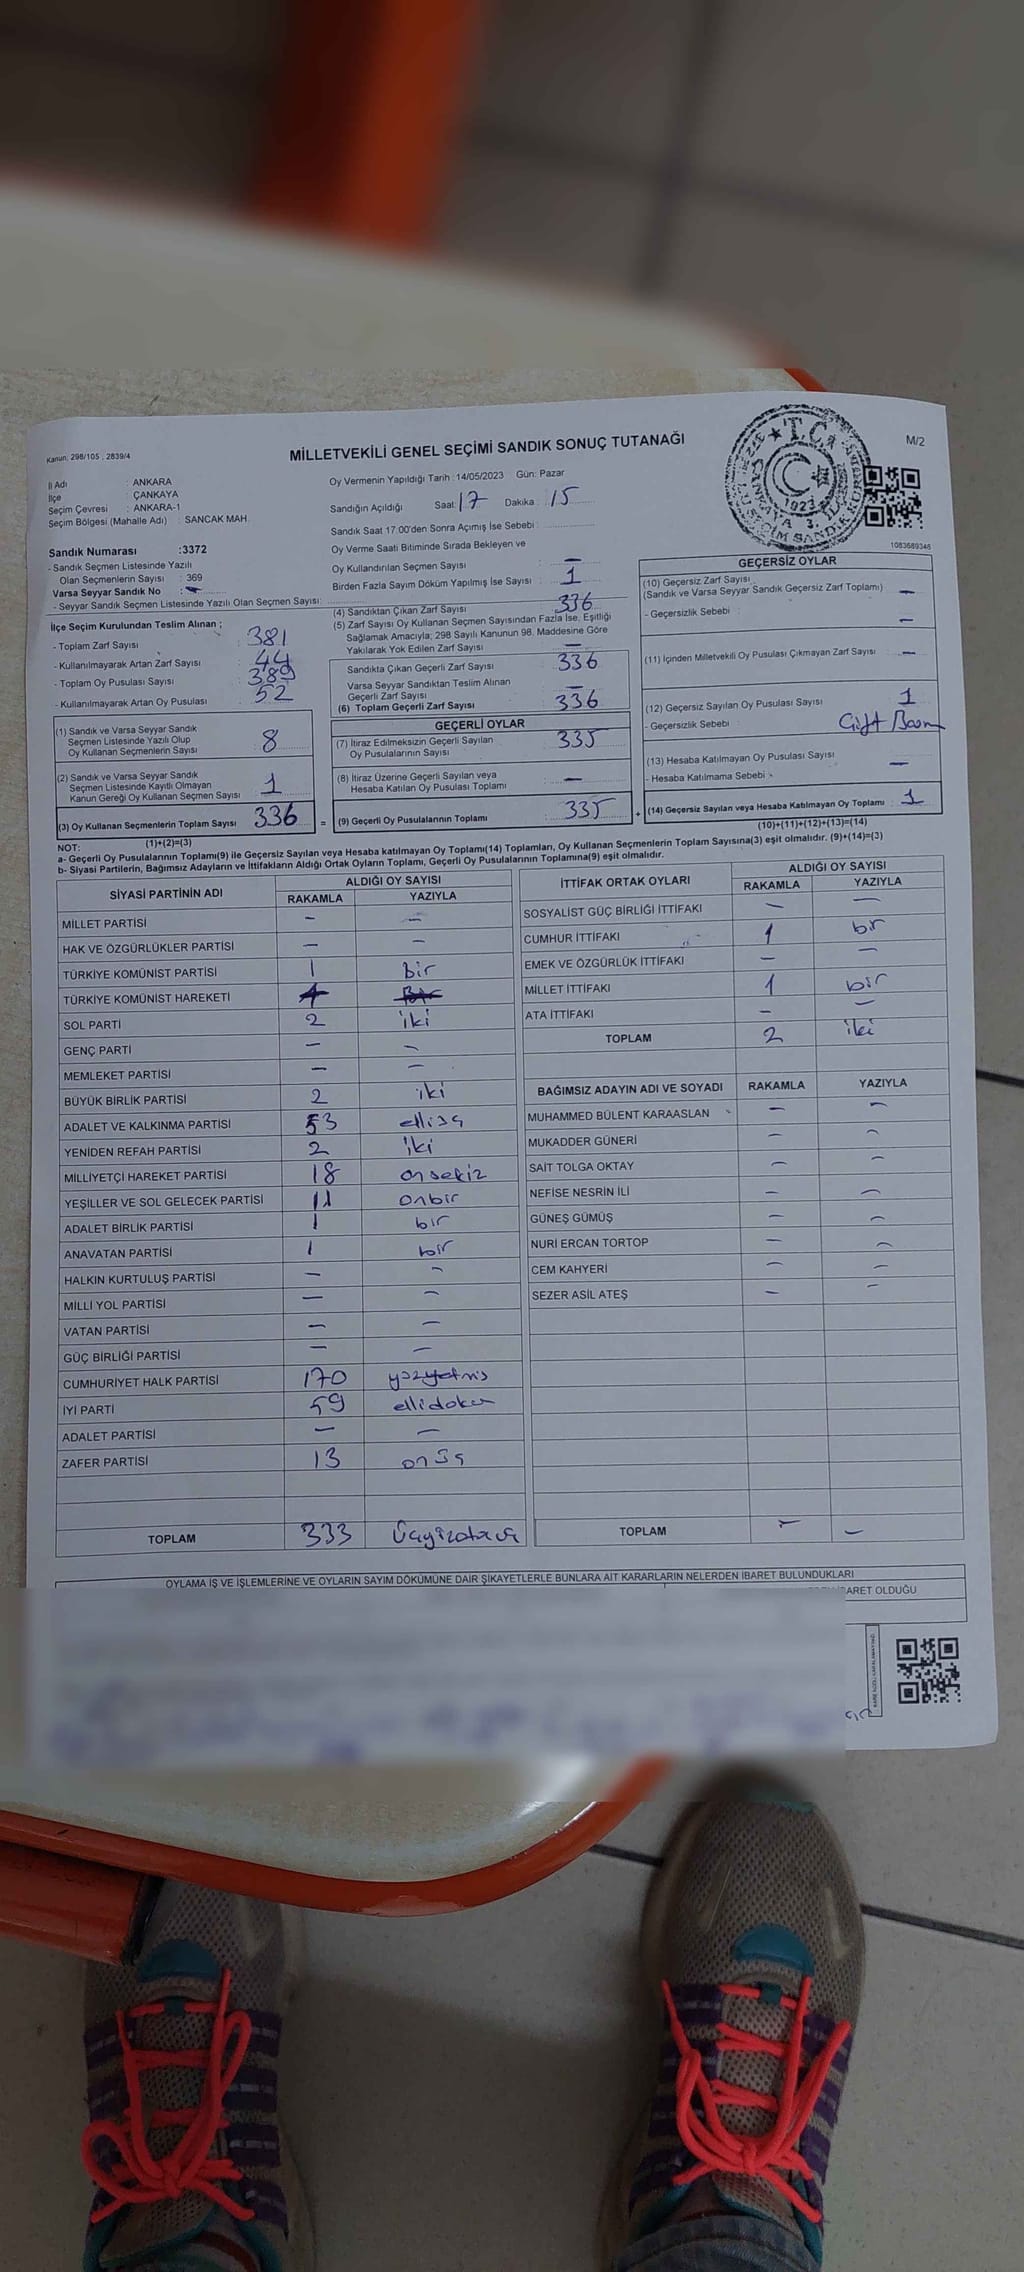 Kanun: 298/105 , 2839/4
MİLLETVEKİLİ GENEL SEÇİMİ SANDIK SONUÇ TUTANAĞI
M/2
T.C.
1923
1083689346
İl Adı : ANKARA
İlçe : ÇANKAYA
Seçim Çevresi : ANKARA-1
Seçim Bölgesi (Mahalle Adı) : SANCAK MAH.
Sandık Numarası :3372
- Sandık Seçmen Listesinde Yazılı
Olan Seçmenlerin Sayısı : 369
Varsa Seyyar Sandık No :
- Seyyar Sandık Seçmen Listesinde Yazılı Olan Seçmen Sayısı:
Oy Vermenin Yapıldığı Tarih :14/05/2023 Gün: Pazar
Sandığın Açıldığı Saat: 17 Dakika : 15
Sandık Saat 17:00'den Sonra Açımış İse Sebebi :
Oy Verme Saati Bitiminde Sırada Bekleyen ve
Oy Kullandırılan Seçmen Sayısı : —
Birden Fazla Sayım Döküm Yapılmış İse Sayısı : 1
İlçe Seçim Kurulundan Teslim Alınan ;
- Toplam Zarf Sayısı : 381
- Kullanılmayarak Artan Zarf Sayısı : 44
- Toplam Oy Pusulası Sayısı : 389
- Kullanılmayarak Artan Oy Pusulası : 52
(1) Sandık ve Varsa Seyyar Sandık
Seçmen Listesinde Yazılı Olup
Oy Kullanan Seçmenlerin Sayısı : 8
(2) Sandık ve Varsa Seyyar Sandık
Seçmen Listesinde Kayıtlı Olmayan
Kanun Gereği Oy Kullanan Seçmen Sayısı : 1
(3) Oy Kullanan Seçmenlerin Toplam Sayısı : 336 =
(1)+(2)=(3)
(4) Sandıktan Çıkan Zarf Sayısı : 336
(5) Zarf Sayısı Oy Kullanan Seçmen Sayısından Fazla İse, Eşitliği
Sağlamak Amacıyla; 298 Sayılı Kanunun 98. Maddesine Göre
Yakılarak Yok Edilen Zarf Sayısı : —
Sandıkta Çıkan Geçerli Zarf Sayısı : 336
Varsa Seyyar Sandıktan Teslim Alınan
Geçerli Zarf Sayısı : —
(6) Toplam Geçerli Zarf Sayısı : 336
GEÇERLİ OYLAR
(7) İtiraz Edilmeksizin Geçerli Sayılan
Oy Pusulalarının Sayısı : 335
(8) İtiraz Üzerine Geçerli Sayılan veya
Hesaba Katılan Oy Pusulası Toplamı : —
(9) Geçerli Oy Pusulalarının Toplamı : 335 +
GEÇERSİZ OYLAR
(10) Geçersiz Zarf Sayısı
(Sandık ve Varsa Seyyar Sandık Geçersiz Zarf Toplamı) —
- Geçersizlik Sebebi : —
(11) İçinden Milletvekili Oy Pusulası Çıkmayan Zarf Sayısı : —
(12) Geçersiz Sayılan Oy Pusulası Sayısı : 1
- Geçersizlik Sebebi : Çift Basım
(13) Hesaba Katılmayan Oy Pusulası Sayısı : —
- Hesaba Katılmama Sebebi
(14) Geçersiz Sayılan veya Hesaba Katılmayan Oy Toplamı : 1
(10)+(11)+(12)+(13)=(14)
NOT:
a- Geçerli Oy Pusulalarının Toplamı(9) ile Geçersiz Sayılan veya Hesaba katılmayan Oy Toplamı(14) Toplamları, Oy Kullanan Seçmenlerin Toplam Sayısına(3) eşit olmalıdır. (9)+(14)=(3)
b- Siyasi Partilerin, Bağımsız Adayların ve İttifakların Aldığı Ortak Oyların Toplamı, Geçerli Oy Pusulalarının Toplamına(9) eşit olmalıdır.
SİYASİ PARTİNİN ADI ALDIĞI OY SAYISI
RAKAMLA YAZIYLA
MİLLET PARTİSİ — —
HAK VE ÖZGÜRLÜKLER PARTİSİ — —
TÜRKİYE KOMÜNİST PARTİSİ 1 bir
TÜRKİYE KOMÜNİST HAREKETİ 1 Bir
SOL PARTİ 2 iki
GENÇ PARTİ — —
MEMLEKET PARTİSİ — —
BÜYÜK BİRLİK PARTİSİ 2 iki
ADALET VE KALKINMA PARTİSİ 53 elliüç
YENİDEN REFAH PARTİSİ 2 iki
MİLLİYETÇİ HAREKET PARTİSİ 18 onsekiz
YEŞİLLER VE SOL GELECEK PARTİSİ 11 onbir
ADALET BİRLİK PARTİSİ 1 bir
ANAVATAN PARTİSİ 1 bir
HALKIN KURTULUŞ PARTİSİ — —
MİLLİ YOL PARTİSİ — —
VATAN PARTİSİ — —
GÜÇ BİRLİĞİ PARTİSİ — —
CUMHURİYET HALK PARTİSİ 170 yüzyetmiş
İYİ PARTİ 59 ellidokuz
ADALET PARTİSİ — —
ZAFER PARTİSİ 13 onüç
TOPLAM 333 üçyüzotuzüç
İTTİFAK ORTAK OYLARI ALDIĞI OY SAYISI
RAKAMLA YAZIYLA
SOSYALİST GÜÇ BİRLİĞİ İTTİFAKI — —
CUMHUR İTTİFAKI 1 bir
EMEK VE ÖZGÜRLÜK İTTİFAKI — —
MİLLET İTTİFAKI 1 bir
ATA İTTİFAKI — —
TOPLAM 2 iki
BAĞIMSIZ ADAYIN ADI VE SOYADI RAKAMLA YAZIYLA
MUHAMMED BÜLENT KARAASLAN — —
MUKADDER GÜNERİ — —
SAİT TOLGA OKTAY — —
NEFİSE NESRİN İLİ — —
GÜNEŞ GÜMÜŞ — —
NURİ ERCAN TORTOP — —
CEM KAHYERİ — —
SEZER ASİL ATEŞ — —
TOPLAM — —
OYLAMA İŞ VE İŞLEMLERİNE VE OYLARIN SAYIM DÖKÜMÜNE DAİR ŞİKAYETLERLE BUNLARA AİT KARARLARIN NELERDEN İBARET BULUNDUKLARI
OLDUĞU